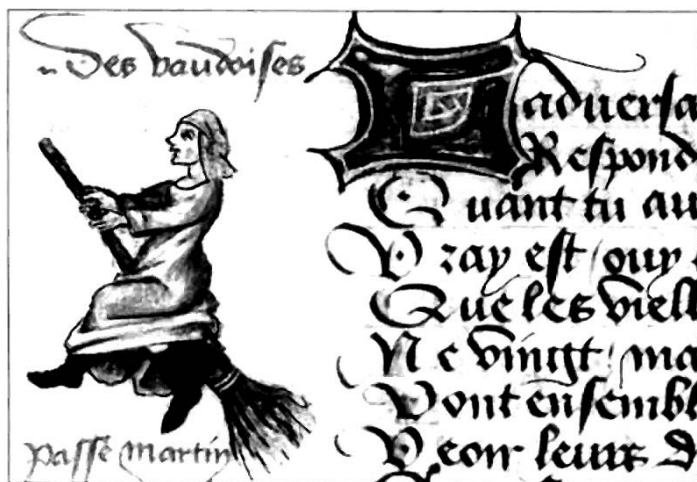 Des vaudoises
L adversa
Respond
Quant tu au
Vray est / ouy
Que les vieill
Ne vingt / ma
Vont ensembl
Veoir leurs d
passe martin